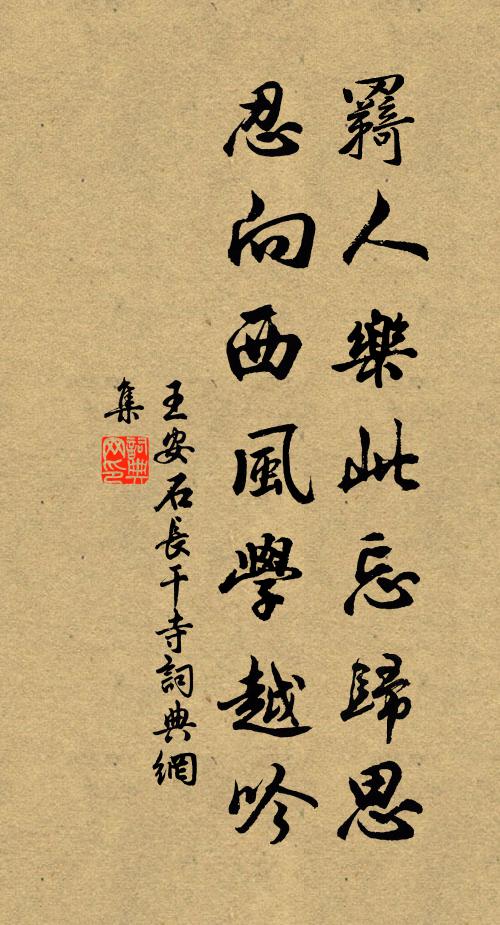 羇人樂此忘歸思
忍向西風學越吟
王安石長干寺詞典網
集
詞典
网印